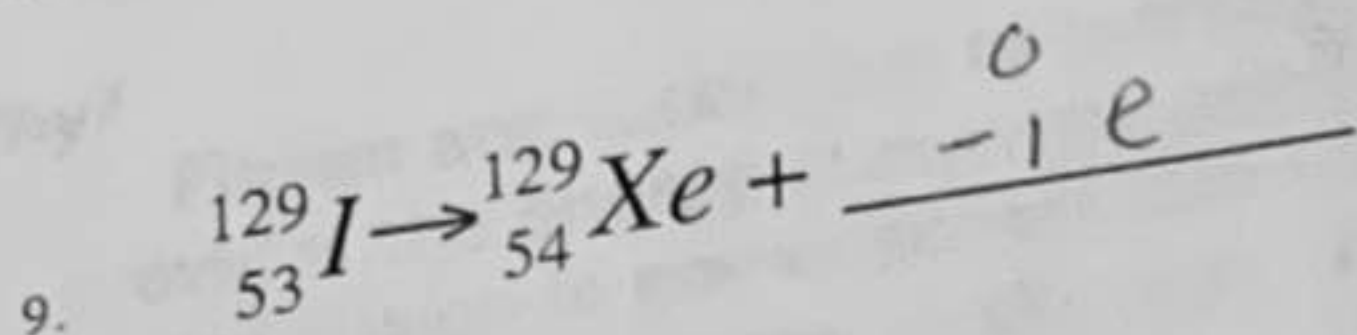 9. ¹²⁹₅₃I → ¹²⁹₅₄Xe + ⁰₋₁e